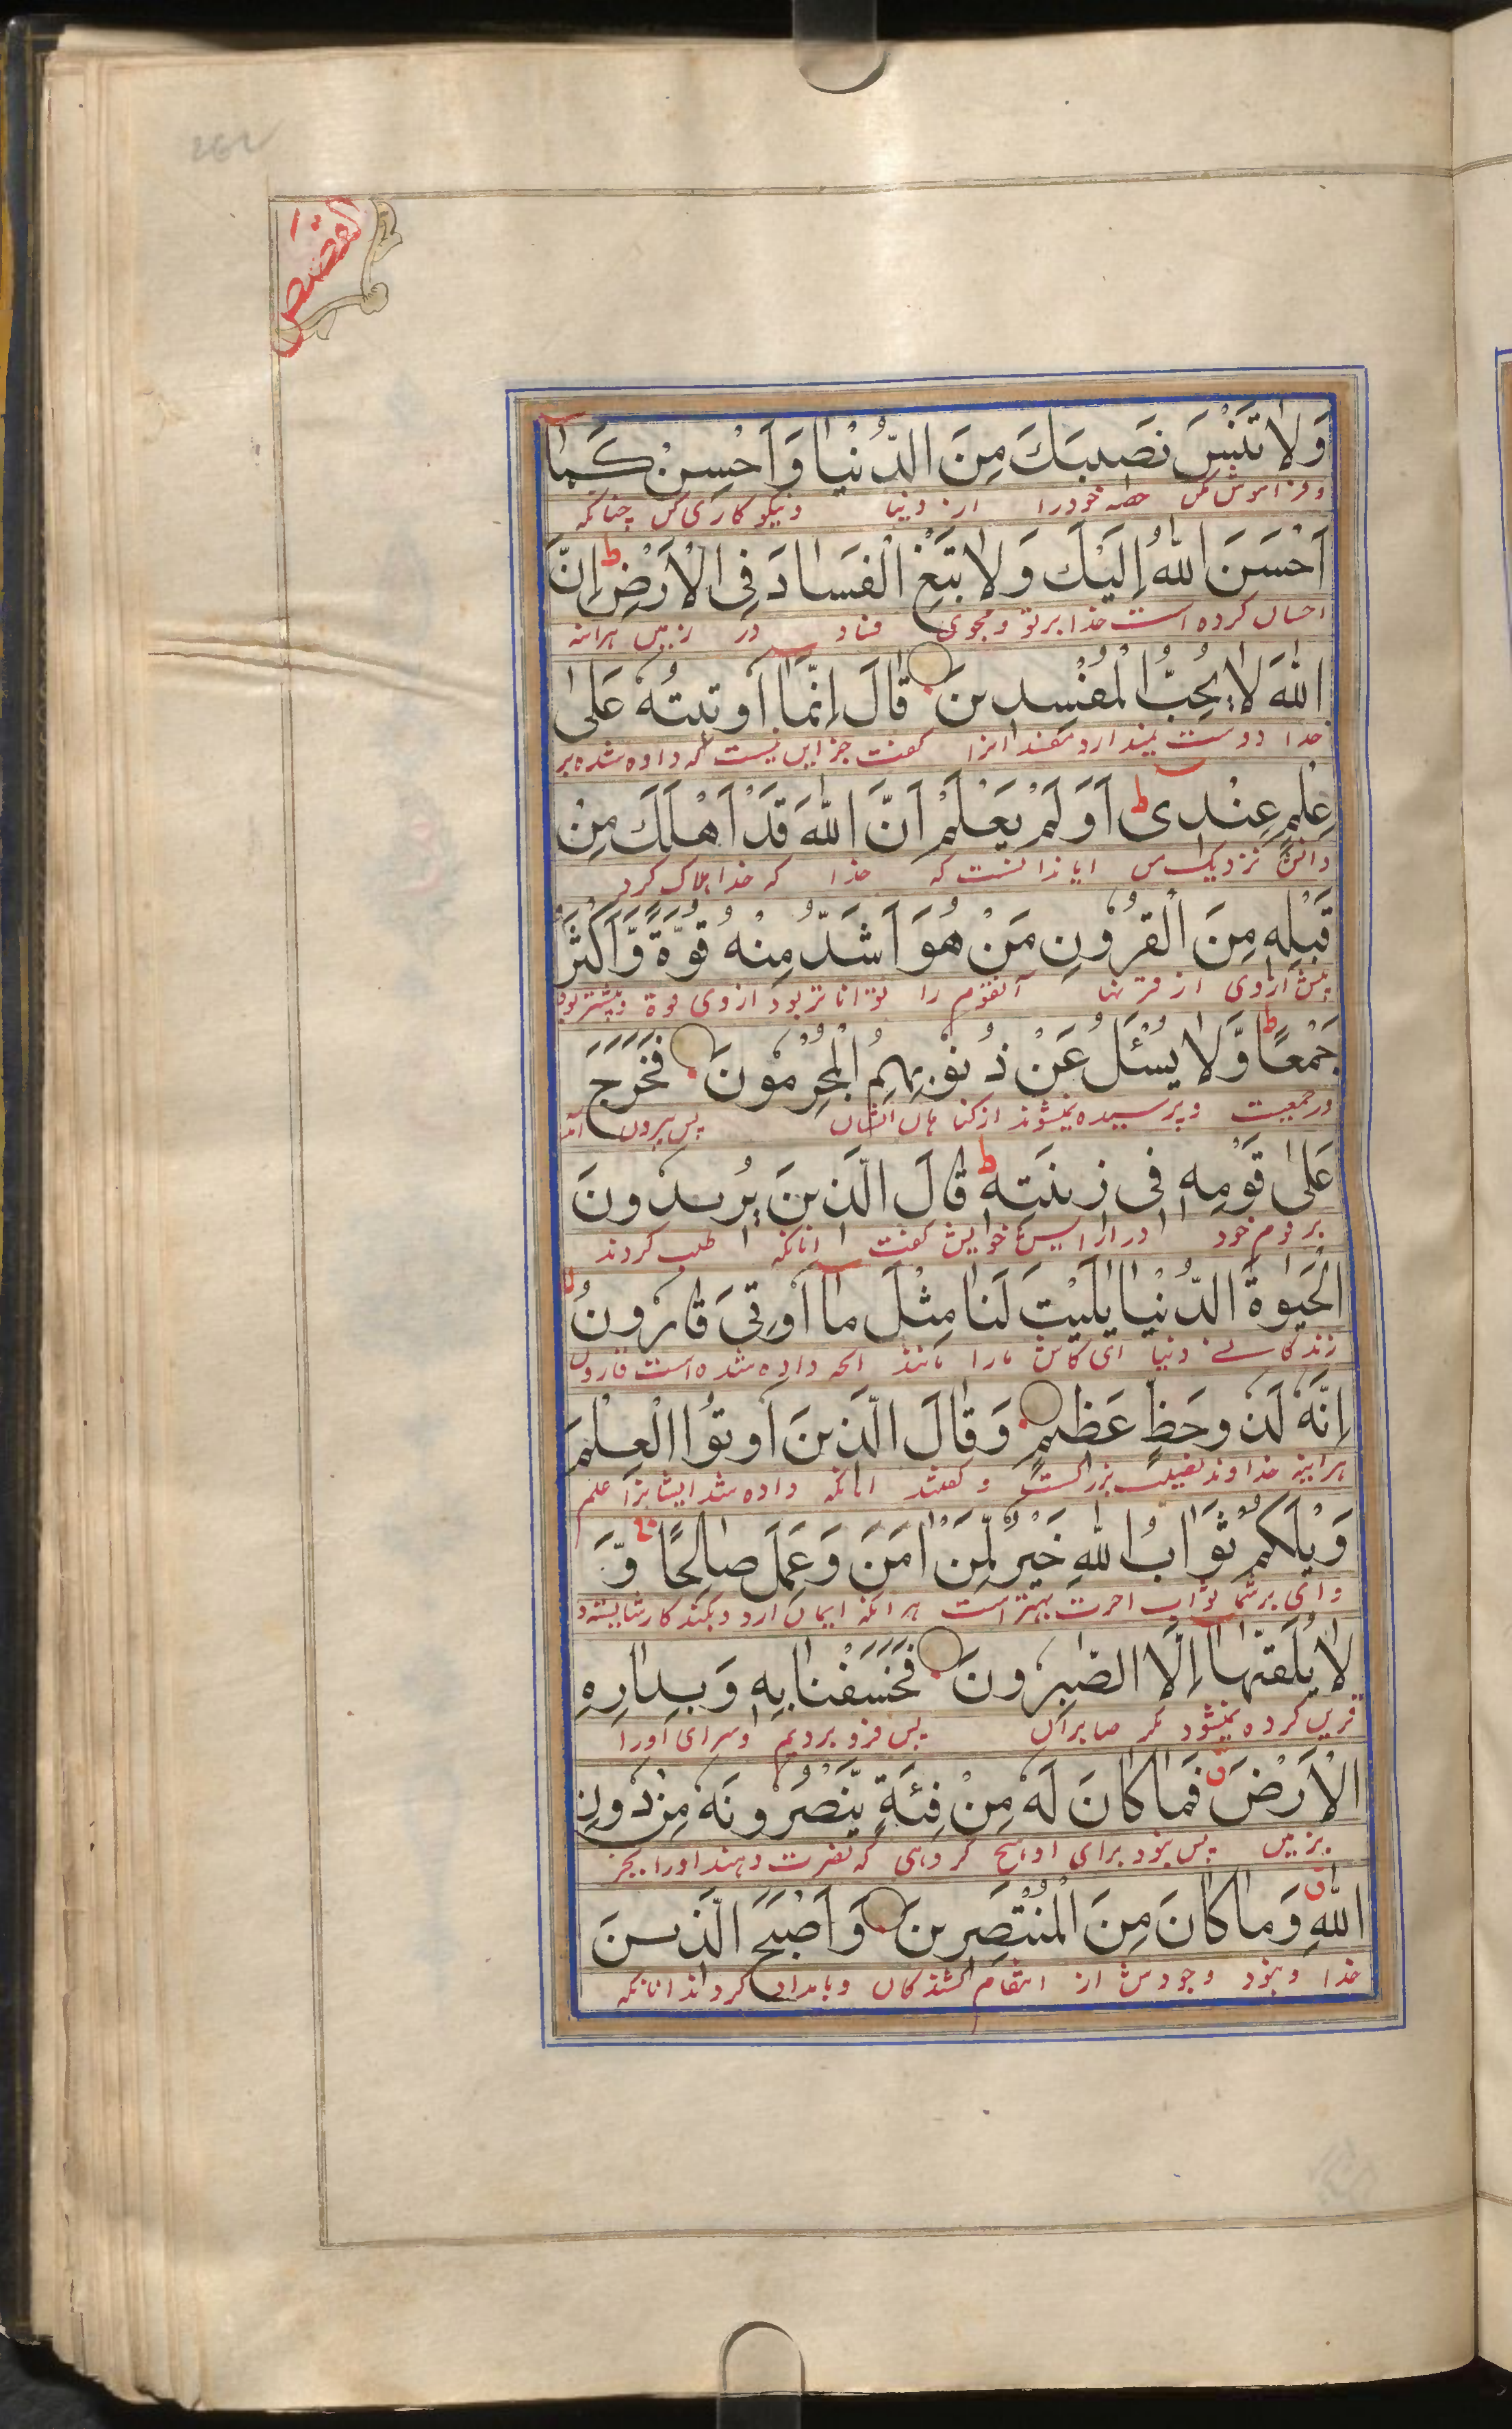 القصص
وَلَا تَنْسَ نَصِيبَكَ مِنَ الدُّنْيَا وَاَحْسِنْ كَمَا
و فراموش مکن حصه خود را از دنیا و نیکو کاری کن چنانکه
اَحْسَنَ اللّٰهُ اِلَيْكَ وَلَا تَبْغِ الْفَسَادَ فِى الْاَرْضِ ط اِنَّ
احسان کرده است خدا بر تو و مجوی فساد در زمین هراینه
اللّٰهَ لَا يُحِبُّ الْمُفْسِدِينَ قَالَ اِنَّمَا اُوتِيتُهُ عَلٰى
خدا دوست نمیدارد مفسدانرا گفت جز این نیست که داده شده بر
عِلْمٍ عِنْدِى ط اَوَلَمْ يَعْلَمْ اَنَّ اللّٰهَ قَدْ اَهْلَكَ مِنْ
دانش نزدیک من ایا ندانست که خدا که خدا هلاک کرد
قَبْلِهِ مِنَ الْقُرُونِ مَنْ هُوَ اَشَدُّ مِنْهُ قُوَّةً وَّاَكْثَرُ
پیش از وی از قرنها آنقوم را توانا تر بود از وی قوة و بیشتر بود
جَمْعًا ط وَّلَا يُسْئَلُ عَنْ ذُنُوبِهِمُ الْمُجْرِمُونَ فَخَرَجَ
در جمعیت و پرسیده نمیشوند از کناهان ایشان پس بیرون آمد
عَلٰى قَوْمِهِ فِى زِينَتِهِ ط قَالَ الَّذِينَ يُرِيدُونَ
بر قوم خود در ارایش خویش گفت انانکه طلب کردند
الْحَيٰوةَ الدُّنْيَا يٰلَيْتَ لَنَا مِثْلَ مَا اُوتِىَ قَارُونُ لا
زندکانی دنیا ای کاش مارا مانند انچه داده شده است قارون
اِنَّهُ لَذُو حَظٍّ عَظِيمٍ وَقَالَ الَّذِينَ اُوتُوا الْعِلْمَ
هراینه خداوند نصیب بزرکست و گفتند انانکه داده شد ایشانرا علم
وَيْلَكُمْ ثَوَابُ اللّٰهِ خَيْرٌ لِّمَنْ اٰمَنَ وَعَمِلَ صَالِحًا وَّ
وای بر شما ثواب اخرت بهتر است هر انکه ایمان ارد و بکند کار شایسته و
لَا يُلَقّٰهَا اِلَّا الصّٰبِرُونَ فَخَسَفْنَا بِهِ وَبِدَارِهِ
قرین کرده نمیشود مکر صابران پس فرو بردیم و سرای اورا
الْاَرْضَ ق فَمَا كَانَ لَهُ مِنْ فِئَةٍ يَّنْصُرُونَهُ مِنْ دُونِ
بزمین پس نبود برای او هیچ کروهی که نصرت دهند اورا بجز
اللّٰهِ ق وَمَا كَانَ مِنَ الْمُنْتَصِرِينَ وَاَصْبَحَ الَّذِينَ
خدا و نبود وجودش از انتقام کشندکان و بامداد کردند انانکه